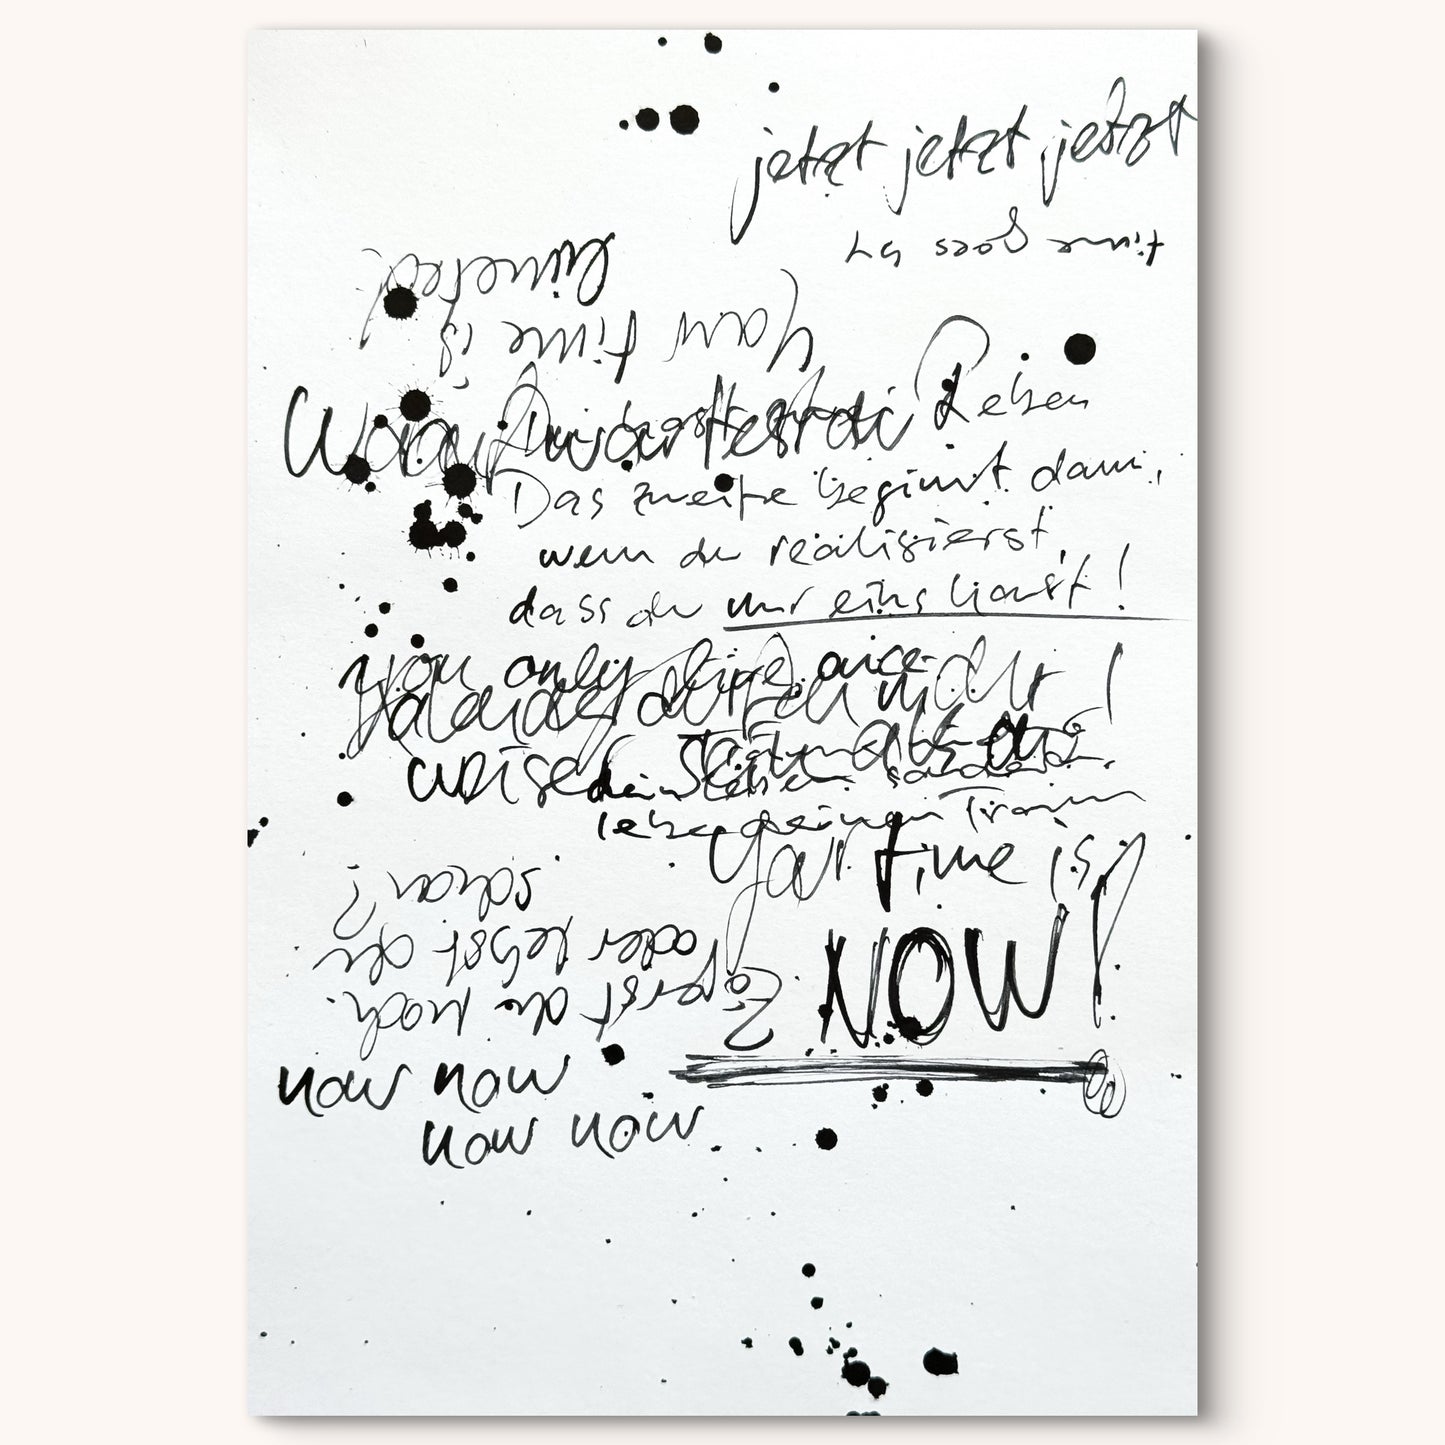 jetzt jetzt jetzt
time goes by
Your time is
limited.
Worauf wartest du
Du hast zwei Leben
Das zweite beginnt dann,
wenn du realisierst,
dass du nur eins hast!
you only live once
nicht!
dein Leben, sondern
lebe deinen Traum
Your time is
NOW!
Zögerst du noch.
oder lebst du
schon?
now now
now now